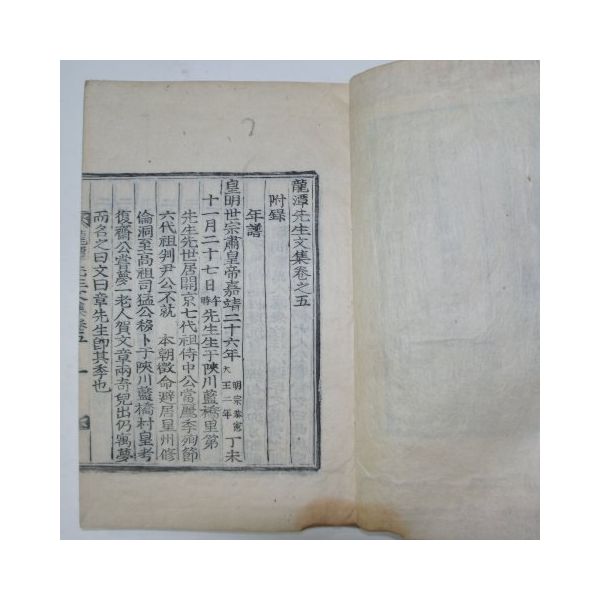 龍潭先生文集卷之五
附錄
年譜
皇明世宗肅皇帝嘉靖二十六年明宗恭憲大王二年丁未
十一月二十七日午時先生生于陜川藍橋里第
先生先世居開京七代祖侍中公當麗李殉節
六代祖判尹公不就 本朝徵命避居星州修
倫洞至高祖司猛公移卜于陜川藍橋村皇考
復齋公嘗夢一老人賀文章兩奇兒出仍寓夢
而名之曰文曰章先生卽其季也
龍潭先生文集卷五 一